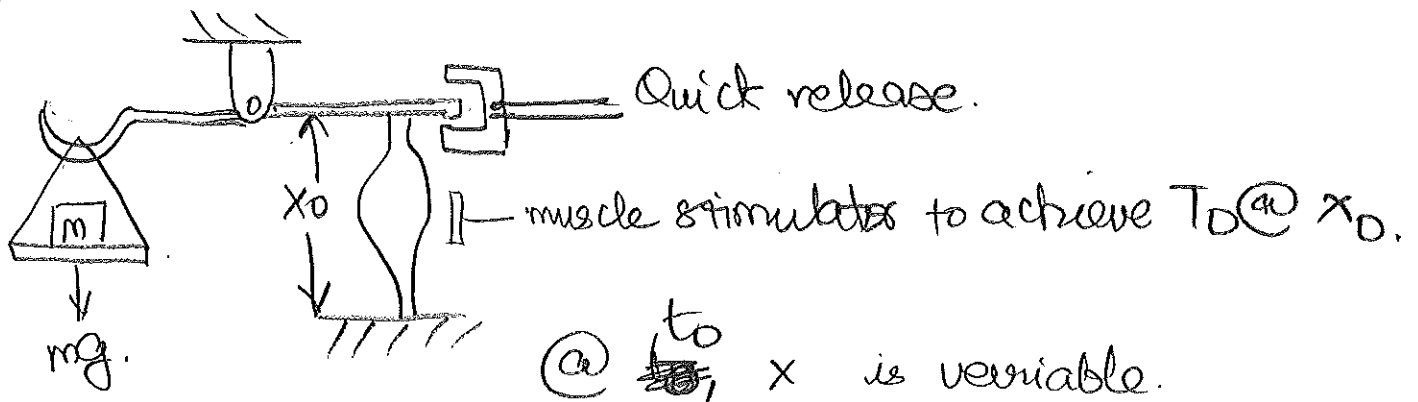 Quick release.
x0
muscle stimulator to achieve T0 @ x0.
m
mg.
@ t0, x is verriable.